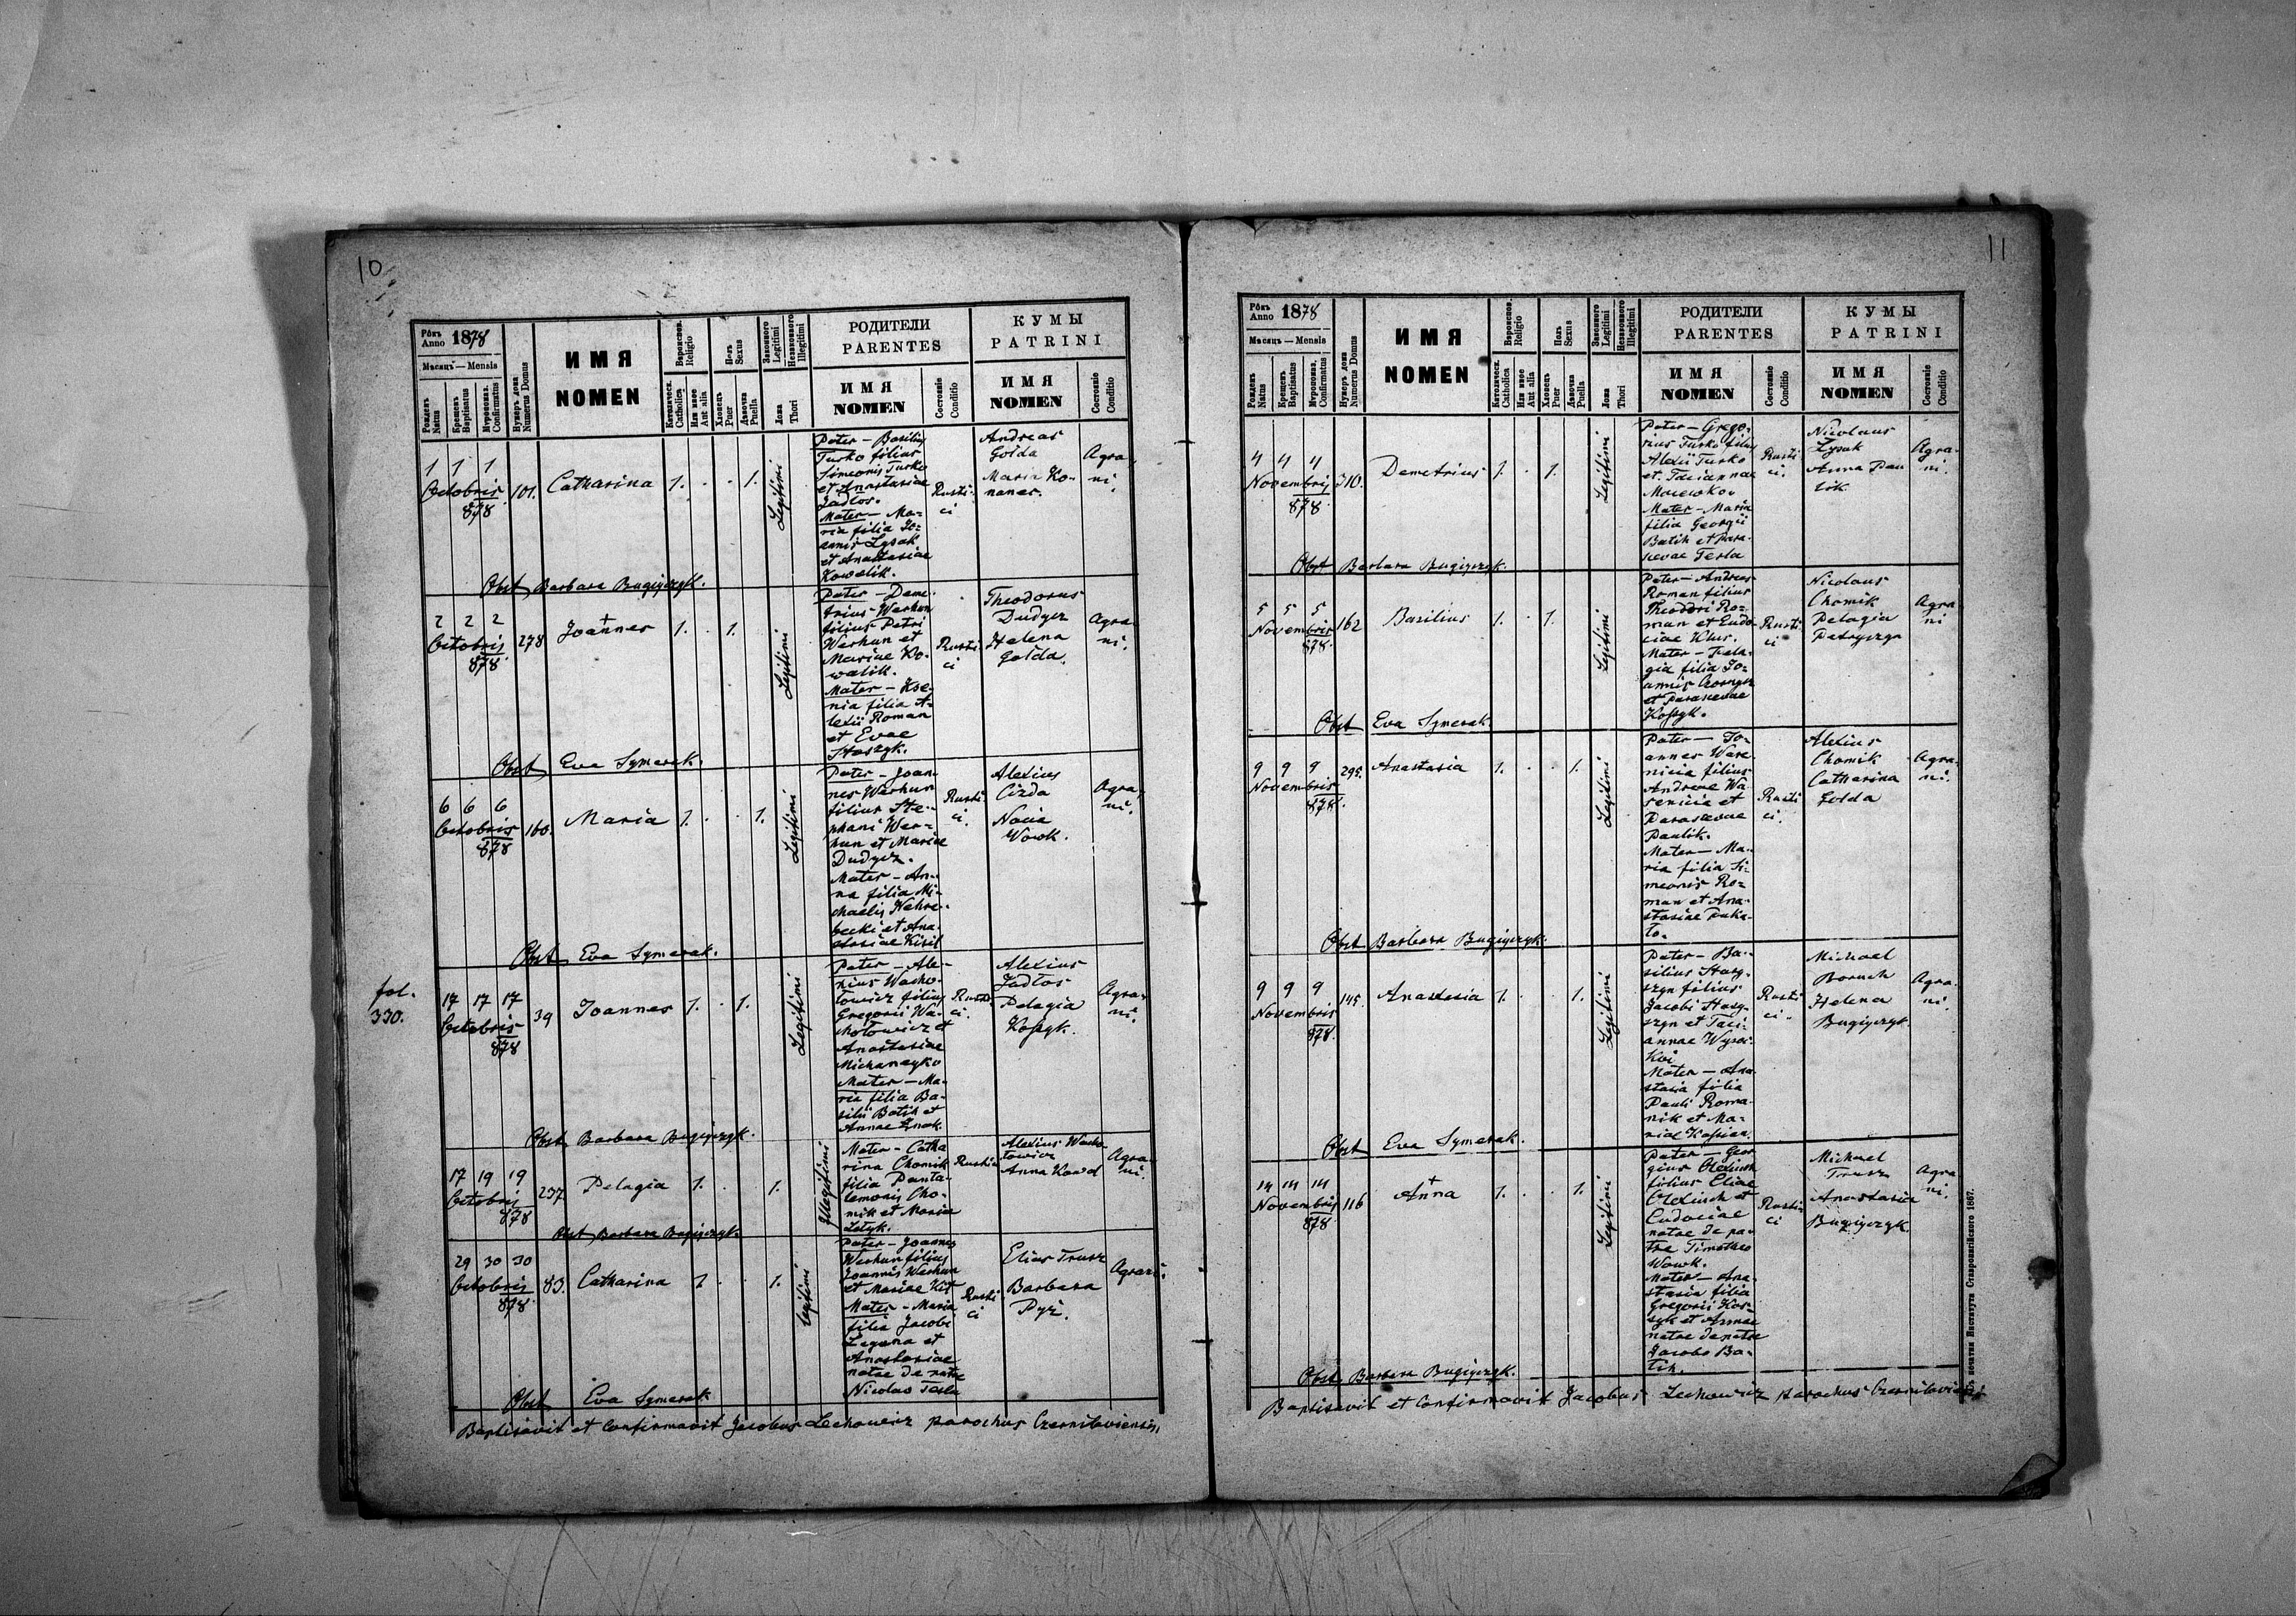 10
Рôкъ
Anno 1878
Мѣсяцъ — Mensis
Рожденъ
Natus
Крещенъ
Baptisatus
Мѵропомаз.
Confirmatus
Нумеръ дома
Numerus Domus
ИМЯ
NOMEN
Вѣроиспов.
Religio
Католическ.
Catholica
Или иное
Aut alia
Полъ
Sexus
Хлопецъ
Puer
Дѣвочка
Puella
Законного
Legitimi
Незаконного
Illegitimi
Ложа
Thori
РОДИТЕЛИ
PARENTES
ИМЯ
NOMEN
Состояніе
Conditio
КУМЫ
PATRINI
ИМЯ
NOMEN
Состояніе
Conditio
1 1 1
Octobris
878
101.
Catharina
1. . . 1.
Legitimi
Pater – Basilius
Turko filius
Simeonis Turko
et Anastasiae
Jadłos.
Mater – Ma-
ria filia Jo-
annis Lysak
et Anastasiae
Kowalik.
Rusti-
ci
Andreas
Golda
Maria Ko-
naner.
Agra-
ni.
Obst Barbara Bugiyczyk.
2 2 2
Octobris
878.
278
Joannes
+
1. . 1.
Legitimi
Pater – Deme-
trius Werhun
filius Petri
Werhun et
Mariae Ko-
walik.
Mater – Xse-
nia filia A-
lexii Roman
et Evae
Staszyk.
Rusti-
ci
Theodorus
Dudycz
Helena
Golda.
Agra-
ni.
Obst Eva Symerak.
6 6 6
Octobris
878
160.
Maria
1. . . 1.
Legitimi
Pater – Joan-
nes Werhun
filius Ste-
phani Wer-
hun et Mariae
Dudycz.
Mater – An-
na filia Mi-
chaelis Wehre-
becki et Ana-
stasiae Kisil
Rusti-
ci.
Alexius
Cizda
Nova
Wowk.
Agra-
ni.
Obst Eva Symerak.
fol.
330.
17 17 17
Octobris
878
39
Joannes
1. . 1.
Legitimi
Pater – Ale-
xius Wacho-
towicz filius
Gregorii Wa-
chotowicz et
Anastasiae
Michanayko
Mater – Ma-
ria filia Ba-
silii Batih et
Annae Znak.
Rusti-
ci.
Alexius
Jadłos
Pelagia
Kossyk.
Agra-
ni.
Obst Barbara Bugiyczyk.
17 19 19
Octobris
878
237.
Pelagia
1. . 1.
Illegitimi
Mater – Catha
rina Chomik
filia Panta-
lemonis Cho-
mik et Mariae
Letyk.
Rustici
Alexius Wacho-
towicz
Anna Kowal
Agra-
ni.
Obst Barbara Bugiyczyk.
29 30 30
Octobris
878.
83.
Catharina
1. . 1.
Legitimi
Pater – Joannes
Werhun filius
Joannis Werhun
et Mariae Kit
Mater – Maria
filia Jacobi
Legana et
Anastasiae
natae de patre
Nicolao Tesla
Rusti
ci
Elias Trusz
Barbara
Pyz.
Agrari.
Obst Eva Symerak
Baptisavit et Confirmavit Jacobus Lechowicz parochus Czernilaviensis.
11
Рôкъ
Anno 1878
Мѣсяцъ — Mensis
Рожденъ
Natus
Крещенъ
Baptisatus
Мѵропомаз.
Confirmatus
Нумеръ дома
Numerus Domus
ИМЯ
NOMEN
Вѣроиспов.
Religio
Католическ.
Catholica
Или иное
Aut alia
Полъ
Sexus
Хлопецъ
Puer
Дѣвочка
Puella
Законного
Legitimi
Незаконного
Illegitimi
Ложа
Thori
РОДИТЕЛИ
PARENTES
ИМЯ
NOMEN
Состояніе
Conditio
КУМЫ
PATRINI
ИМЯ
NOMEN
Состояніе
Conditio
4 4 4
Novembris
878.
310.
Demetrius
1. . 1.
Legitimi
Pater – Grego-
rius Turko filius
Alexii Turko
et Taciannae
Macewko.
Mater – Maria
filia Georgii
Batih et Para-
scevae Tesla
Rusti
ci.
Nicolaus
Lysak
Anna Pau
lik.
Agra-
ni.
Obst Barbara Bugiyczyk.
5 5 5
Novembris
878.
162
Basilius
1. . 1.
Legitimi
Pater – Andreas
Roman filius
Theodori Ro-
man et Eudo-
ciae Klus.
Mater – Pela-
gia filia Jo-
annis
et Parascevae
Kossyk.
Rusti
ci
Nicolaus
Chomik
Pelagia
Petryczyn
Agra-
ni
Obst Eva Symerak.
9 9 9
Novembris
878.
295.
Anastasia
1. . . 1.
Legitimi
Pater – Jo-
annes Ware-
nicia filius
Andreae Wa-
renicia et
Parascevae
Paulik.
Mater – Ma-
ria filia Si-
meonis Ro-
man et Ana-
stasiae Puka-
to.
Rusti
ci.
Alexius
Chomik
Catharina
Golda
Agra-
ni.
Obst Barbara Bugiyczyk.
9 9 9
Novembris
878.
145.
Anastasia
1. . . 1.
Legitimi
Pater – Ba-
silius Hasy-
szyn filius
Jacobi Hasy-
szyn et Taci-
annae Wysoc-
kii
Mater – Ana
stasia filia
Pauli Roma-
nik et Ma-
riae Kassian.
Rusti
ci.
Michael
Boruch
Helena
Bugiyczyk.
Agra-
ni.
Obst Eva Symerak.
14 14 14
Novembris
878.
116
Anna
+
1. . . 1.
Legitimi
Pater – Geor
gius Olexiuch
filius Eliae
Olexiuch et
Eudociae
natae de pa-
tre Timotheo
Wowk.
Mater – Ana-
stasia filia
Gregorii Kos-
syk et Annae
natae de patre
Jacobo Ba-
tih.
Rusti-
ci
Michael
Trusz
Anastasia
Bugiyczyk.
Agra-
ni.
Obst Barbara Bugiyczyk.
Baptisavit et Confirmavit Jacobus Lechowicz parochus Czernilaviensis
Въ печатни Института Ставропигійского 1867.